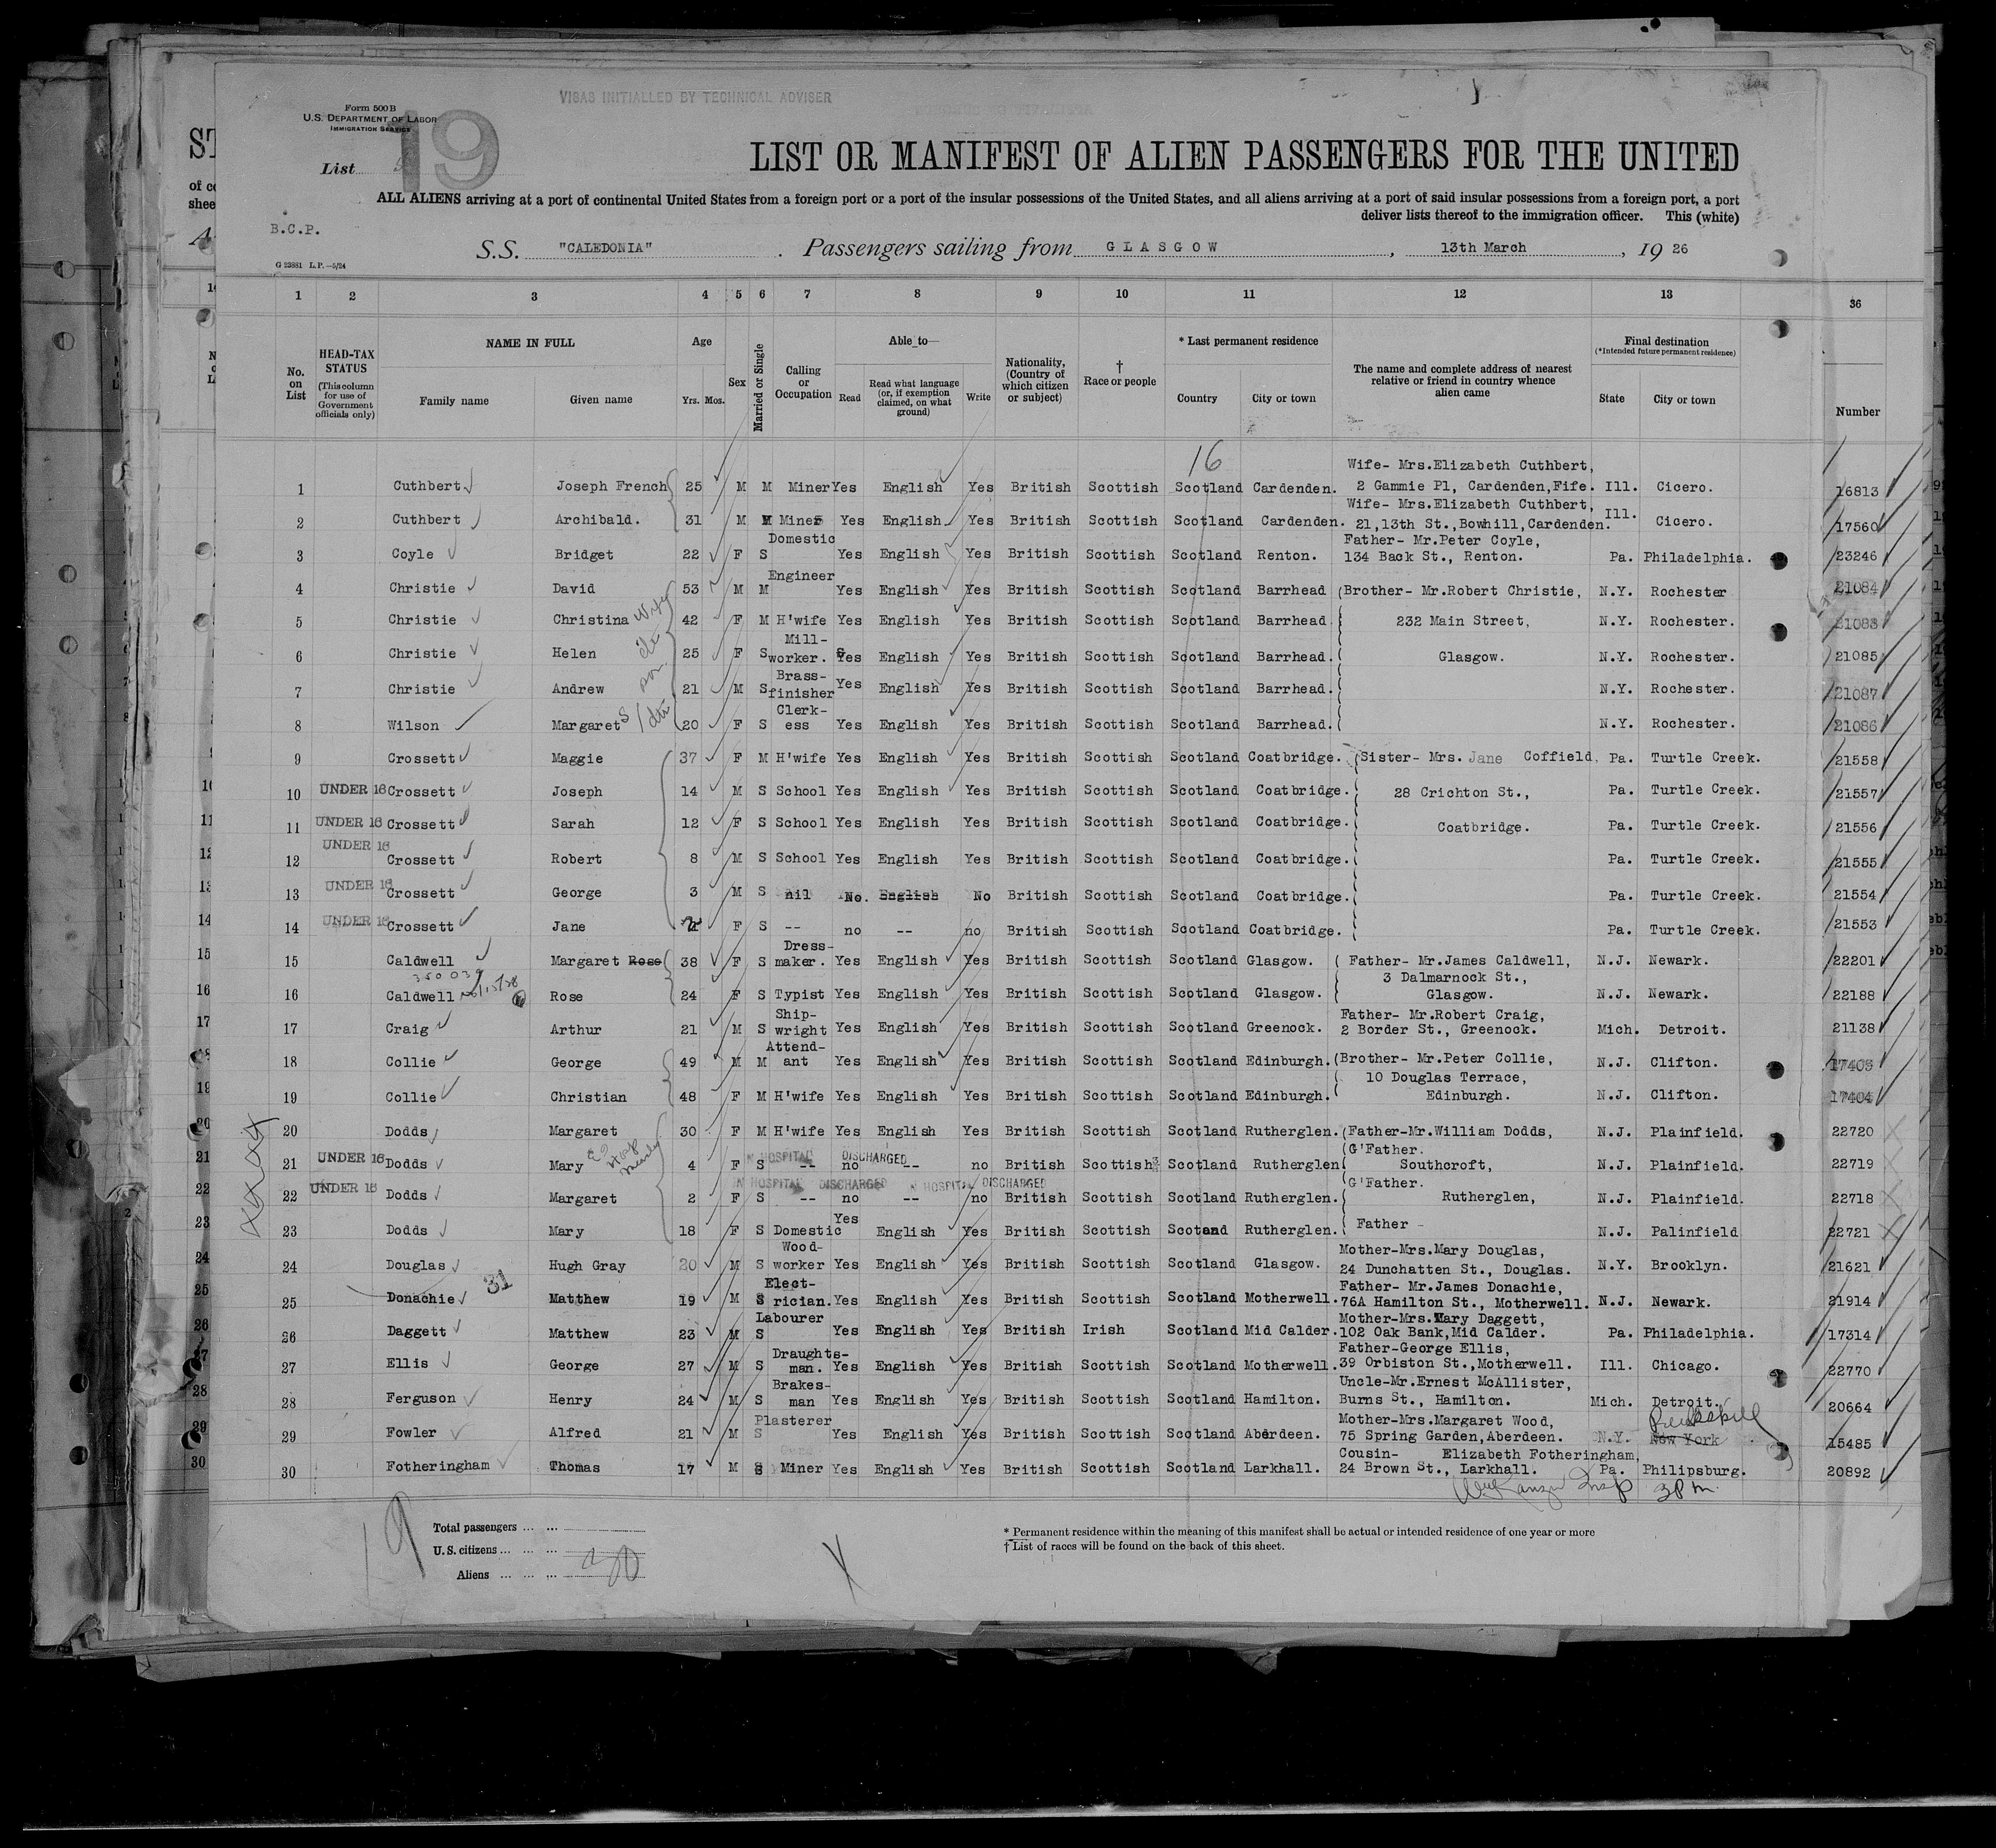 VISAS INITIALLED BY TECHNICAL ADVISER
Form 500 B
U.S. DEPARTMENT OF LABOR
IMMIGRATION SERVICE
19
List
LIST OR MANIFEST OF ALIEN PASSENGERS FOR THE UNITED
ALL ALIENS arriving at a port of continental United States from a foreign port or a port of the insular possessions of the United States, and all aliens arriving at a port of said insular possessions from a foreign port, a port
deliver lists thereof to the immigration officer. This (white)
B.C.P.
S.S. "CALEDONIA". Passengers sailing from GLASGOW, 13th March, 19 26
G 23881 L.P.—5/24
1 2 3 4 5 6 7 8 9 10 11 12 13 36
No. on List
HEAD-TAX STATUS (This column for use of Government officials only)
NAME IN FULL
Family name Given name
Age Yrs. Mos.
Sex
Married or Single
Calling or Occupation
Able to—
Read Read what language (or, if exemption claimed, on what ground) Write
Nationality, (Country of which citizen or subject)
† Race or people
* Last permanent residence
Country City or town
The name and complete address of nearest relative or friend in country whence alien came
Final destination (*Intended future permanent residence)
State City or town
Number
16
1 Cuthbert Joseph French 25 M M Miner Yes English Yes British Scottish Scotland Cardenden. Wife- Mrs.Elizabeth Cuthbert, 2 Gammie Pl, Cardenden,Fife. Ill. Cicero. 16813
2 Cuthbert Archibald. 31 M M Miner Yes English Yes British Scottish Scotland Cardenden. Wife- Mrs.Elizabeth Cuthbert, 21,13th St.,Bowhill,Cardenden. Ill. Cicero. 17560
3 Coyle Bridget 22 F S Domestic Yes English Yes British Scottish Scotland Renton. Father- Mr.Peter Coyle, 134 Back St., Renton. Pa. Philadelphia. 23246
4 Christie David 53 M M Engineer Yes English Yes British Scottish Scotland Barrhead (Brother- Mr.Robert Christie, N.Y. Rochester 21084
5 Christie Christina Wife 42 F M H'wife Yes English Yes British Scottish Scotland Barrhead 232 Main Street, N.Y. Rochester. 21083
6 Christie Helen 25 F S Mill-worker. Yes English Yes British Scottish Scotland Barrhead. Glasgow. N.Y. Rochester. 21085
7 Christie Andrew son 21 M S Brass-finisher Yes English Yes British Scottish Scotland Barrhead. N.Y. Rochester. 21087
8 Wilson Margaret S 20 F S Clerk-ess Yes English Yes British Scottish Scotland Barrhead. N.Y. Rochester. 21086
9 Crossett Maggie 37 F M H'wife Yes English Yes British Scottish Scotland Coatbridge. Sister- Mrs. Jane Coffield, Pa. Turtle Creek. 21558
10 UNDER 16 Crossett Joseph 14 M S School Yes English Yes British Scottish Scotland Coatbridge. 28 Crichton St., Pa. Turtle Creek. 21557
11 UNDER 16 Crossett Sarah 12 F S School Yes English Yes British Scottish Scotland Coatbridge. Coatbridge. Pa. Turtle Creek. 21556
12 UNDER 16 Crossett Robert 8 M S School Yes English Yes British Scottish Scotland Coatbridge. Pa. Turtle Creek. 21555
13 UNDER 16 Crossett George 3 M S nil No. English No British Scottish Scotland Coatbridge. Pa. Turtle Creek. 21554
14 UNDER 16 Crossett Jane F S -- no -- no British Scottish Scotland Coatbridge. Pa. Turtle Creek. 21553
15 Caldwell Margaret Rose 38 F S Dress-maker. Yes English Yes British Scottish Scotland Glasgow. ( Father- Mr.James Caldwell, N.J. Newark. 22201
16 Caldwell Rose 24 F S Typist Yes English Yes British Scottish Scotland Glasgow. 3 Dalmarnock St., Glasgow. N.J. Newark. 22188
17 Craig Arthur 21 M S Ship-wright Yes English Yes British Scottish Scotland Greenock. Father- Mr.Robert Craig, 2 Border St., Greenock. Mich. Detroit. 21138
18 Collie George 49 M M Attend-ant Yes English Yes British Scottish Scotland Edinburgh. (Brother- Mr.Peter Collie, N.J. Clifton. 17405
19 Collie Christian 48 F M H'wife Yes English Yes British Scottish Scotland Edinburgh. 10 Douglas Terrace, Edinburgh. N.J. Clifton. 17404
20 Dodds Margaret 30 F M H'wife Yes English Yes British Scottish Scotland Rutherglen. (Father-Mr.William Dodds, N.J. Plainfield. 22720
21 UNDER 16 Dodds Mary 4 F S IN HOSPITAL -- no DISCHARGED -- no British Scottish Scotland Rutherglen (G'Father. Southcroft, N.J. Plainfield. 22719
22 UNDER 16 Dodds Margaret 2 F S IN HOSPITAL DISCHARGED -- no -- IN HOSPITAL DISCHARGED no British Scottish Scotland Rutherglen. (G'Father. Rutherglen, N.J. Plainfield. 22718
23 Dodds Mary 18 F S Domestic Yes English Yes British Scottish Scotand Rutherglen. Father - N.J. Palinfield 22721
24 Douglas Hugh Gray 20 M S Wood-worker Yes English Yes British Scottish Scotland Glasgow. Mother-Mrs.Mary Douglas, 24 Dunchatten St., Douglas. N.Y. Brooklyn. 21621
31
25 Donachie Matthew 19 M S Elect-rician. Yes English Yes British Scottish Scotland Motherwell. Father- Mr.James Donachie, 76A Hamilton St., Motherwell. N.J. Newark. 21914
26 Daggett Matthew 23 M S Labourer Yes English Yes British Irish Scotland Mid Calder. Mother-Mrs.Mary Daggett, 102 Oak Bank,Mid Calder. Pa. Philadelphia. 17314
27 Ellis George 27 M S Draughts-man. Yes English Yes British Scottish Scotland Motherwell. Father-George Ellis, 39 Orbiston St.,Motherwell. Ill. Chicago. 22770
28 Ferguson Henry 24 M S Brakes-man Yes English Yes British Scottish Scotland Hamilton. Uncle-Mr.Ernest McAllister, Burns St., Hamilton. Mich. Detroit. 20664
29 Fowler Alfred 21 M S Plasterer Yes English Yes British Scottish Scotland Aberdeen. Mother-Mrs.Margaret Wood, 75 Spring Garden,Aberdeen. N.Y. Peekskill New York 15485
30 Fotheringham Thomas 17 M S Miner Yes English Yes British Scottish Scotland Larkhall. Cousin- Elizabeth Fotheringham, 24 Brown St., Larkhall. Pa. Philipsburg. 20892
Insp 3 P m.
19
Total passengers
U.S. citizens
Aliens 30
* Permanent residence within the meaning of this manifest shall be actual or intended residence of one year or more
† List of races will be found on the back of this sheet.